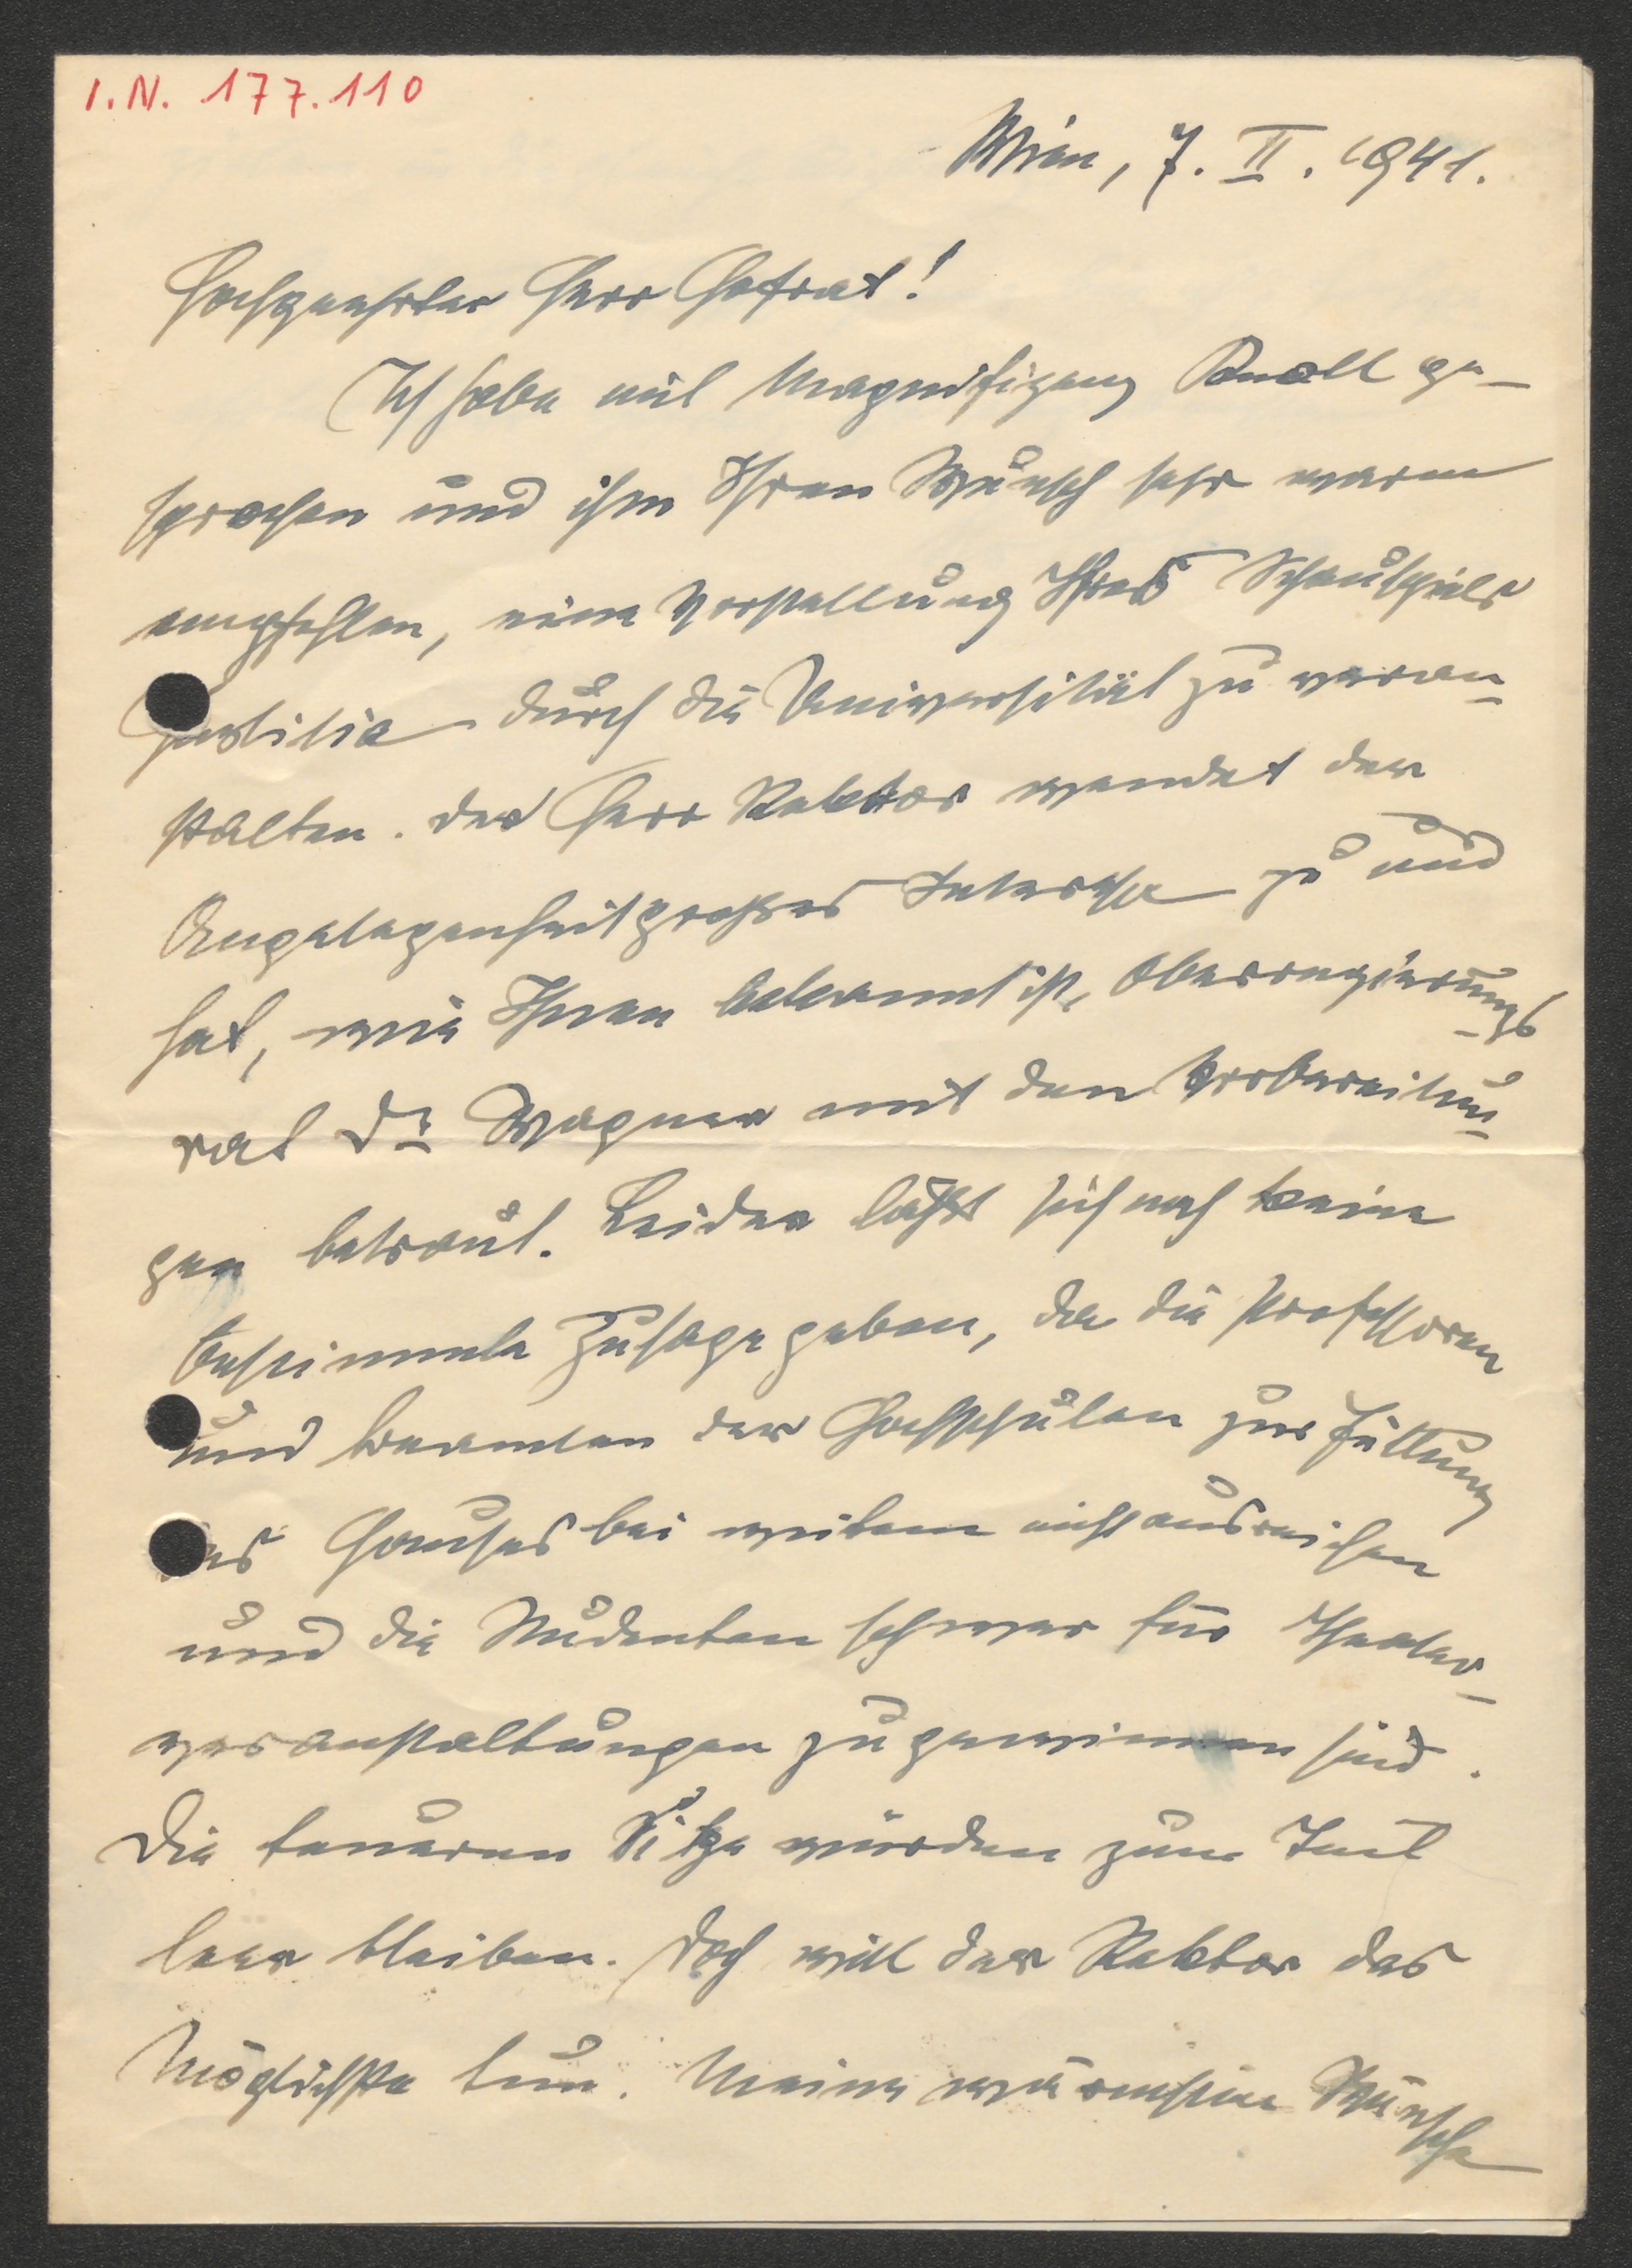 I. N. 177.110
Wien, 7. II. 1941.
Hochgeehrter Herr Hofrat!
Ich habe mit Magnifizenz Knoll ge-
sprochen und ihm Ihren Wunsch sehr warm
empfohlen, eine Vorstellung Ihres Schauspiels
durch die Universität zu veran-
stalten. Der Herr Rektor wendet der
Angelegenheit großes Interesse zu und
hat, wie Ihnen bekannt ist, Oberregierungs-
rat Dr. Wagner mit den Vorbereitun-
gen betraut. Leider läßt sich noch keine
bestimmte Zusage geben, da die Professoren
und Beamten der Hochschulen zur Füllung
des Hauses bei weitem nicht ausreichen
und die Studenten schwer für Theater-
veranstaltungen zu gewinnen sind.
Die teueren Sitze würden zum Teil
leer bleiben. Doch will der Rektor das
Möglichste tun. Meine wärmsten Wünsche